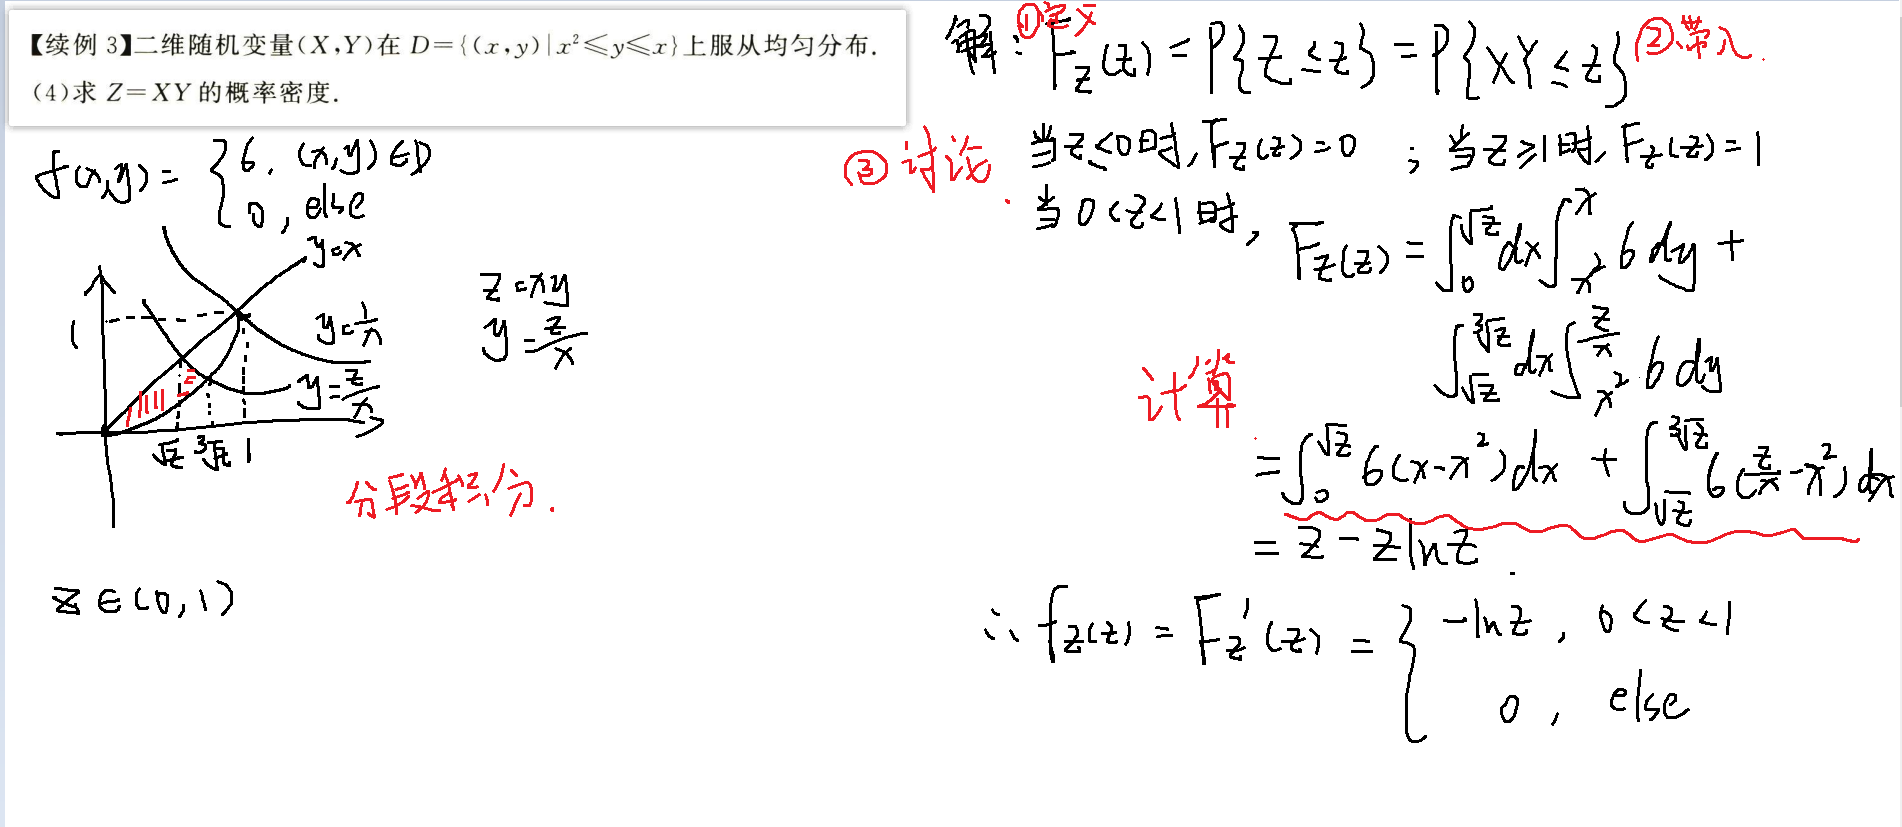 【续例 3】二维随机变量(X,Y)在 D={(x,y)|x²≤y≤x}上服从均匀分布.
(4)求 Z=XY 的概率密度.
f(x,y) = { 6, (x,y)∈D
0, else
y=x
1
y=1/x
y=z/x
√z ³√z 1
z=xy
y=z/x
分段积分.
z∈(0,1)
解: ①定义 F_Z(z) = P{Z≤z} = P{XY≤z} ②带入.
③讨论. 当z≤0时, F_Z(z)=0 ; 当z≥1时, F_Z(z)=1
当0<z<1时, F_Z(z) = ∫₀^√z dx ∫_{x²}^{x} 6 dy +
∫_{√z}^{³√z} dx ∫_{x²}^{z/x} 6 dy
计算.
= ∫₀^√z 6(x-x²)dx + ∫_{√z}^{³√z} 6(z/x-x²)dx
= z - z ln z.
∴ f_Z(z) = F_Z'(z) = { -ln z, 0<z<1
0, else